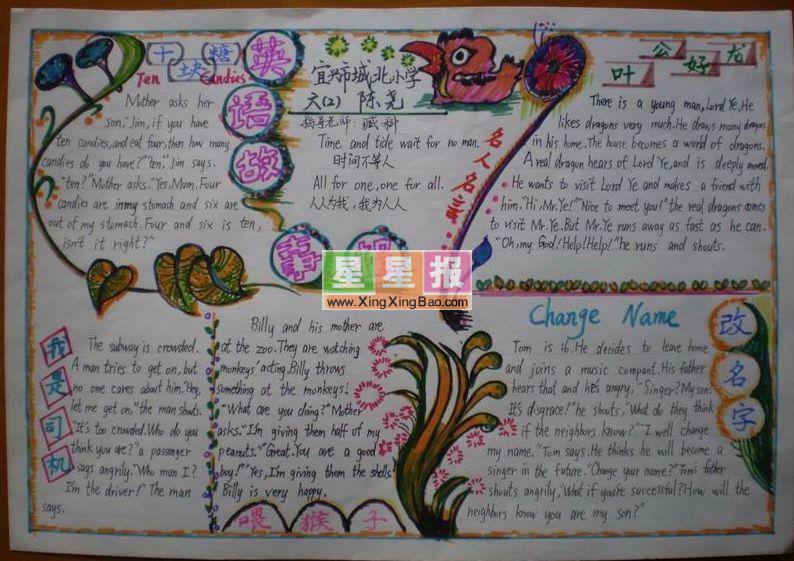 十块糖
Ten Candies
Mother asks her
son, "Jim, if you have
ten candies, and eat four, then how many
candies do you have?" "ten." Jim says.
"ten?" Mother asks. "Yes, Mum. Four
candies are in my stomach and six are
out of my stomach. Four and six is ten,
isn't it right?"
英
语
故
事
宜兴市城北小学
六(2) 陈尧
指导老师:臧科
Time and tide wait for no man.
时间不等人
All for one, one for all.
人人为我,我为人人
名人名言
叶公好龙
There is a young man, Lord Ye. He
likes dragons very much. He draws many dragons
in his home. The house becomes a world of dragons.
A real dragon hears of Lord Ye, and is deeply moved.
He wants to visit Lord Ye and makes a friend with
him. "Hi, Mr. Ye!" "Nice to meet you!" the real dragons comes
to visit Mr. Ye. But Mr. Ye runs away as fast as he can.
"Oh, my God! Help! Help!" he runs and shouts.
星星报
www.XingXingBao.com
我是司机
The subway is crowded.
A man tries to get on, but
no one cares about him. "Hey,
let me get on," the man shouts.
"It's too crowded. Who do you
think you are?" a passenger
says angrily. "Who man I?
I'm the driver!" The man
says.
Billy and his mother are
at the zoo. They are watching
monkeys' acting. Billy throws
something at the monkeys.
"What are you doing?" Mother
asks. "I'm giving them half of my
peanuts." "Great. You are a good
boy!" "Yes, I'm giving them the shells."
Billy is very happy.
喂猴子
Change Name
改
名
字
Tom is 16. He decides to leave home
and joins a music compant. His father
hears that and he's angry, "Singer? My son!
It's disgrace!" he shouts, "What do they think
if the neighbors know?" "I well change
my name." Tom says. He thinks he will become a
singer in the future. "Change your name?" Tom's father
shouts angrily, "What if you're successful? How will the
neighbors know you are my son?"